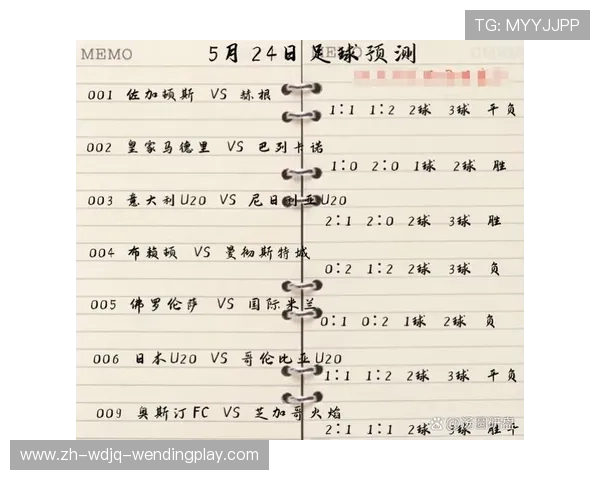 TG: MYYJJPP
MEMO
5月24日足球预测
001 佐加顿斯 VS 赫根
1:1 1:2 2球 3球 平负
002 皇家马德里 VS 巴列卡诺
1:0 2:0 1球 2球 胜
003 意大利U20 VS 尼日利亚U20
2:1 2:0 2球 3球 胜
004 布赖顿 VS 曼彻斯特城
0:2 1:2 2球 3球 负
005 佛罗伦萨 VS 国际米兰
0:1 0:2 1球 2球 负
006 日本U20 VS 哥伦比亚U20
1:1 1:2 2球 3球 平负
009 奥斯汀FC VS 芝加哥火焰
2:1 1:1 2球 3球 胜平
www.zh-wdjq-wendingplay.com